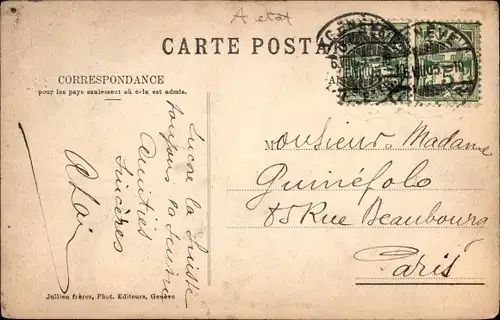 A etat
CARTE POSTA
CORRESPONDANCE
pour les pays seulement où cela est admis.
Encore la Suisse
toujours la Suisse
Amitiés
sincères
M
onsieur Madame
Guinéfolo
85 Rue Beaubourg
Paris
Jullien frères, Phot. Editeurs, Genève